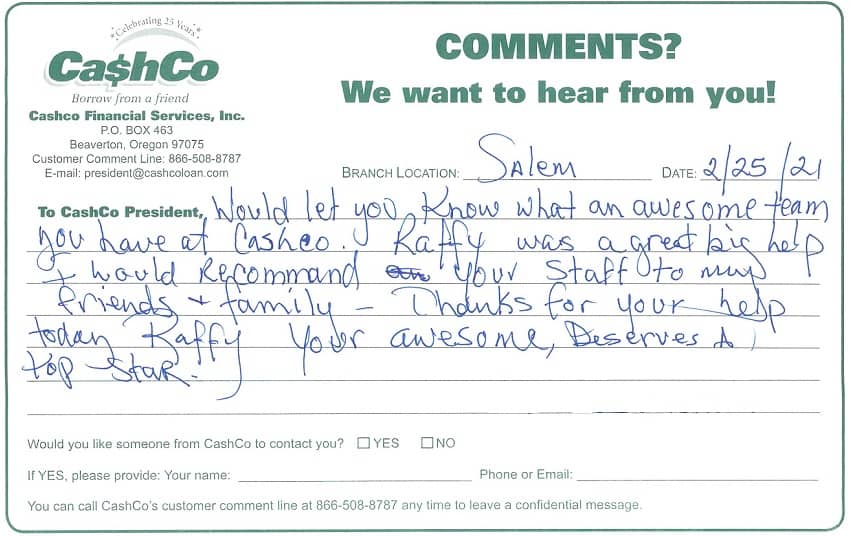 Celebrating 25 Years
Ca$hCo
Borrow from a friend
Cashco Financial Services, Inc.
P.O. BOX 463
Beaverton, Oregon 97075
Customer Comment Line: 866-508-8787
E-mail: president@cashcoloan.com
COMMENTS?
We want to hear from you!
BRANCH LOCATION: Salem DATE: 2/25/21
To CashCo President, Would let you Know what an awesome team
you have at Cashco. Raffy was a great big help
I would Recommand your Staff to my
friends + family - Thanks for your help
today Raffy Your awesome, Deserves A
top Star.
Would you like someone from CashCo to contact you? YES NO
If YES, please provide: Your name: Phone or Email:
You can call CashCo's customer comment line at 866-508-8787 any time to leave a confidential message.